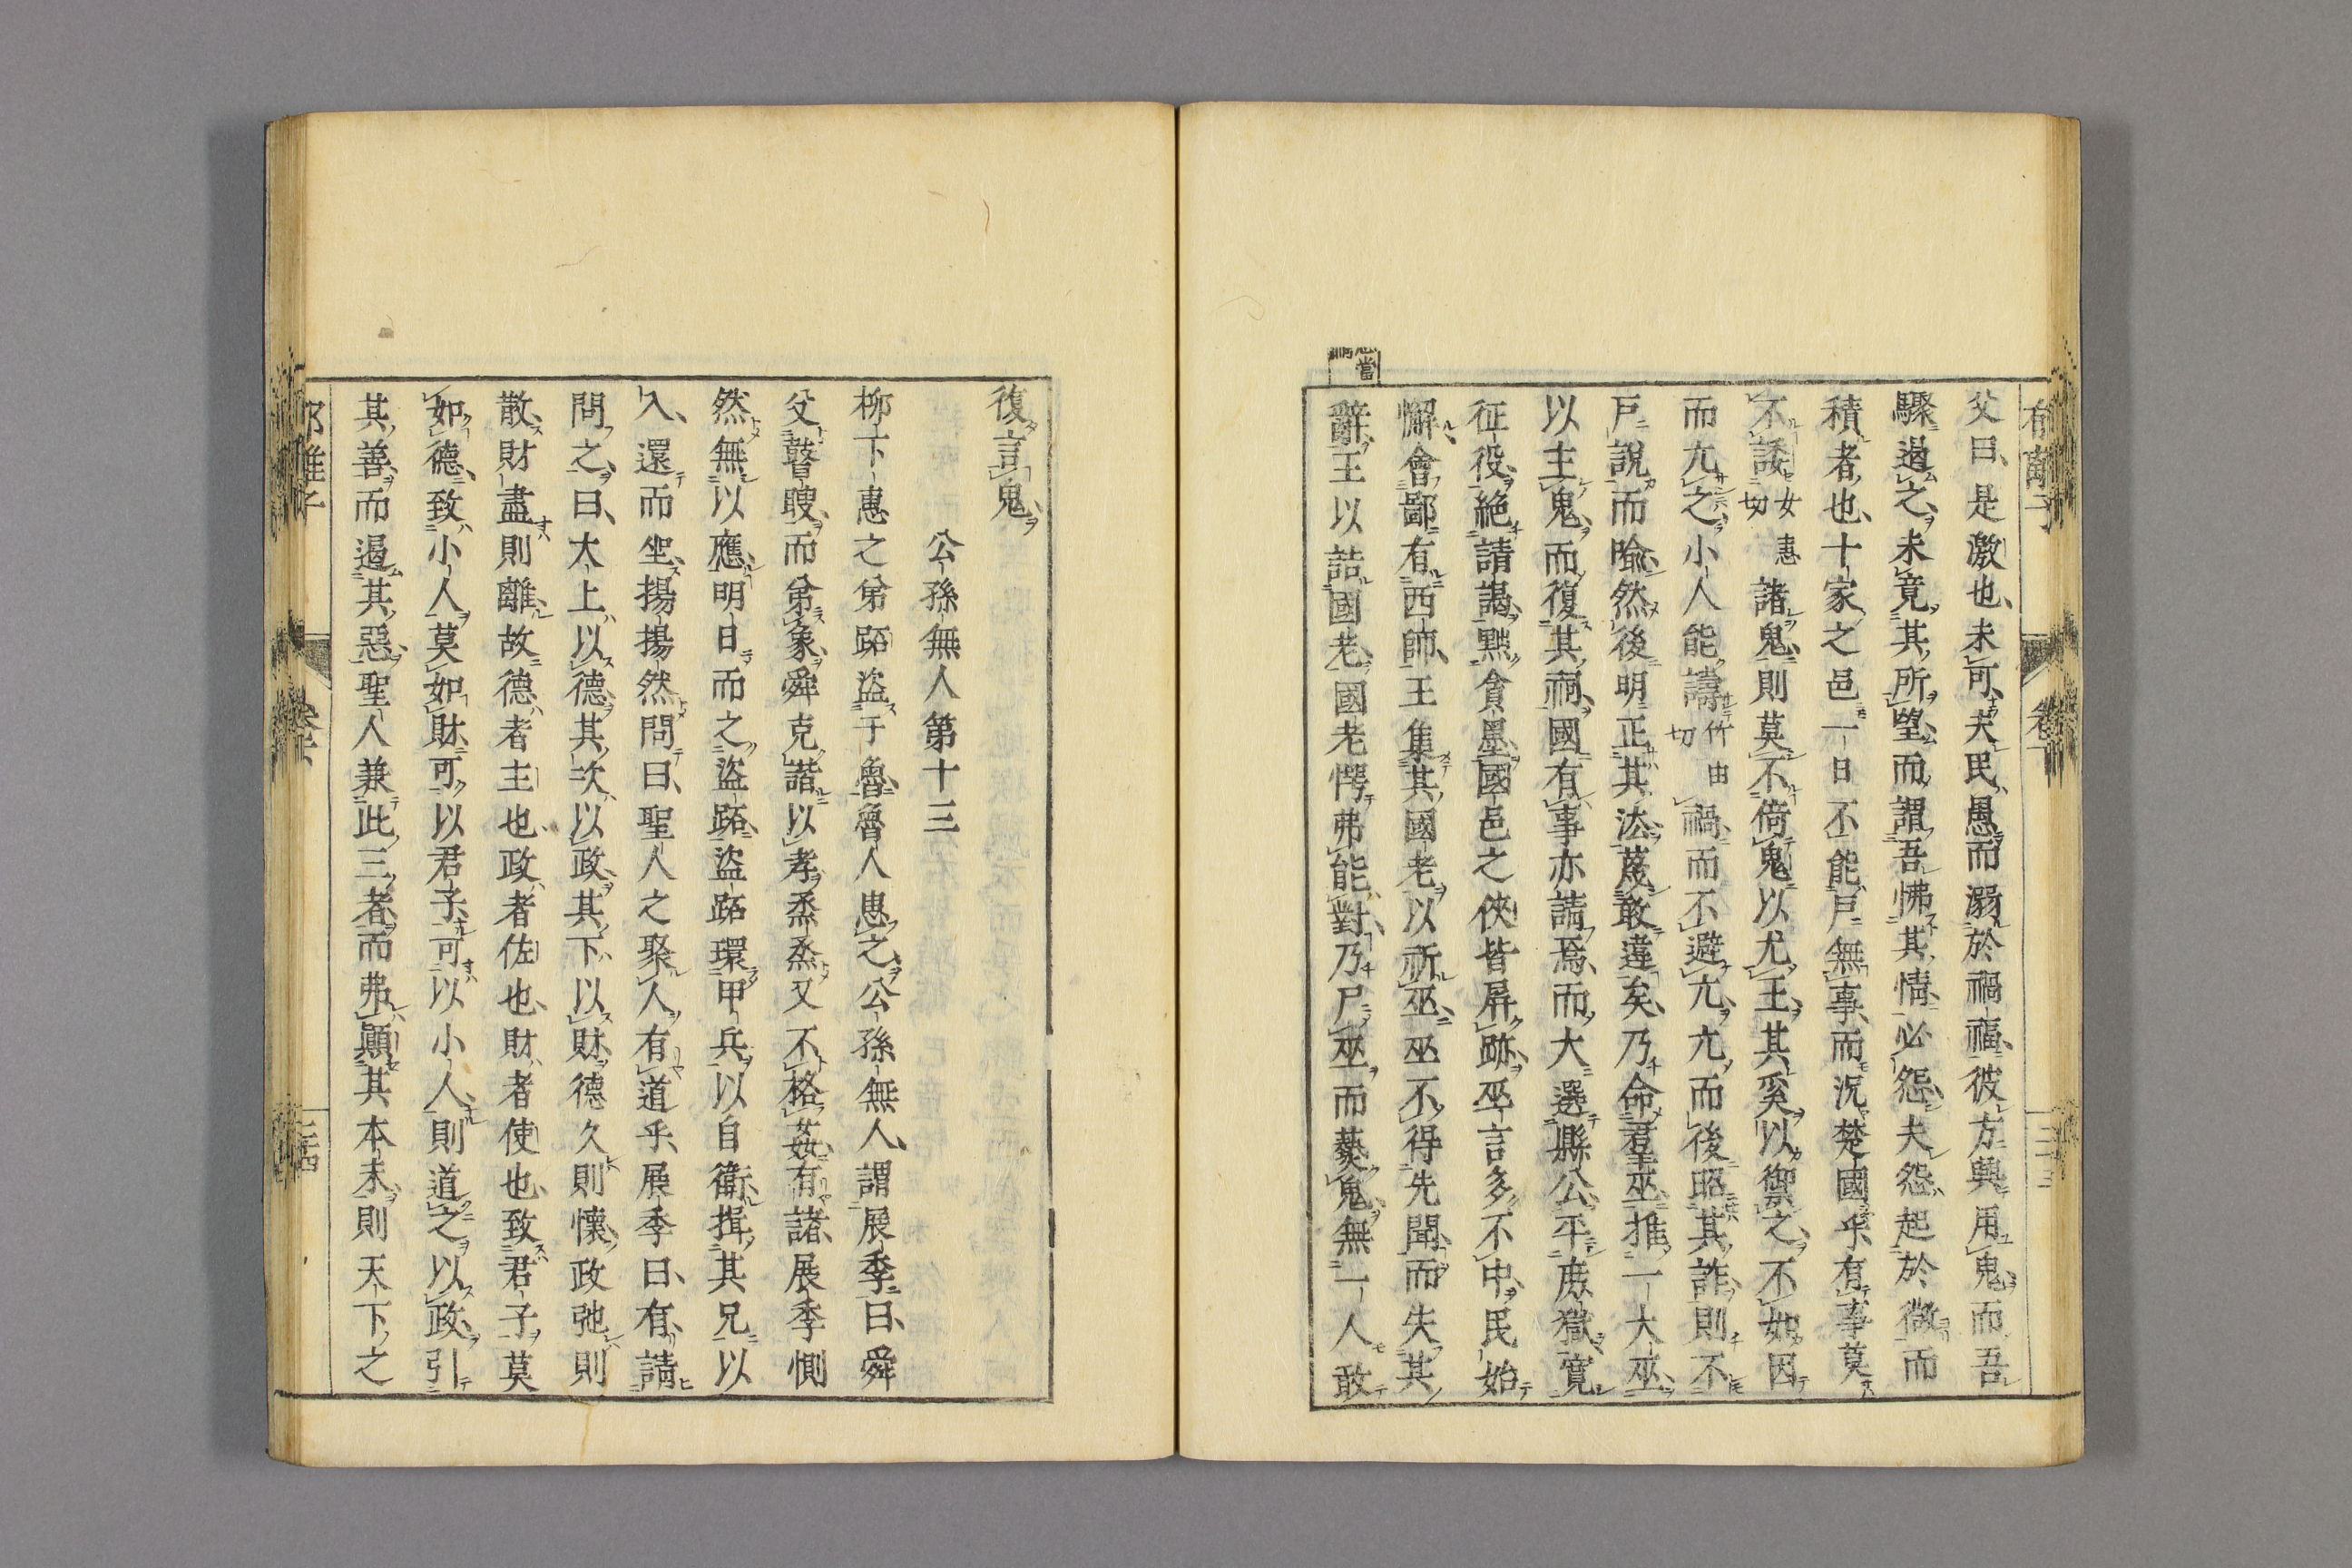 父曰是激也未可夫民愚而溺於禍福彼方興用鬼而吾
驟過之未竟其所望而謂吾怫其情必怨夫怨起於微而
積者也十家之邑一日不能尸無事而況楚國乎有事莫
不諉女惠切諸鬼則莫不倚鬼以尤王王其奚以禦之不如因
而亢之小人能譸竹由切禍而不避亢亢而後昭其詐則不
戸說而喩然後明正其法蔑敢違矣乃命羣巫推一大巫
以主鬼而復其祠國有事亦請焉而大選縣公平庶獄寬
征役絶請謁黙貪墨國邑之俠皆屏跡巫言多不中民始
懈會鄙有西師王集其國老以祈巫巫不得先聞而失其
辭王以詰國老國老愕弗能對乃尸巫而藝鬼無一人敢
復言鬼
公孫無人第十三
柳下惠之弟跖盜于魯魯人患之公孫無人謂展季曰舜
父瞽瞍而弟象舜克諧以孝烝烝乂不格姦有諸展季惻
然無以應明日而之盜跖盜跖環甲兵以自衛揖其兄以
入還而坐揚揚然問曰聖人之聚人有道乎展季曰有請
問之曰大上以德其次以政其下以財德久則懷政弛則
散財盡則離故德者主也政者佐也財者使也致君子莫
如德致小人莫如財可以君子可以小人則道之以政引
其善而遏其惡聖人兼此三者而弗顚其本末則天下之